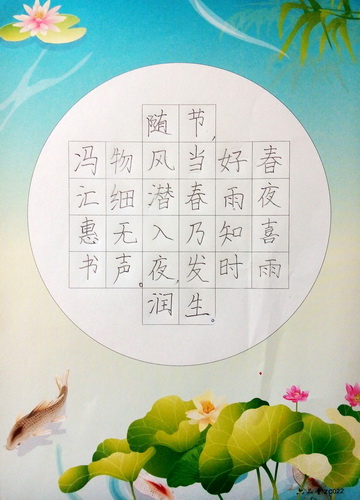 春夜喜雨
好雨知时
节，当春乃发生。
随风潜入夜，润
物细无声。
冯汇惠书